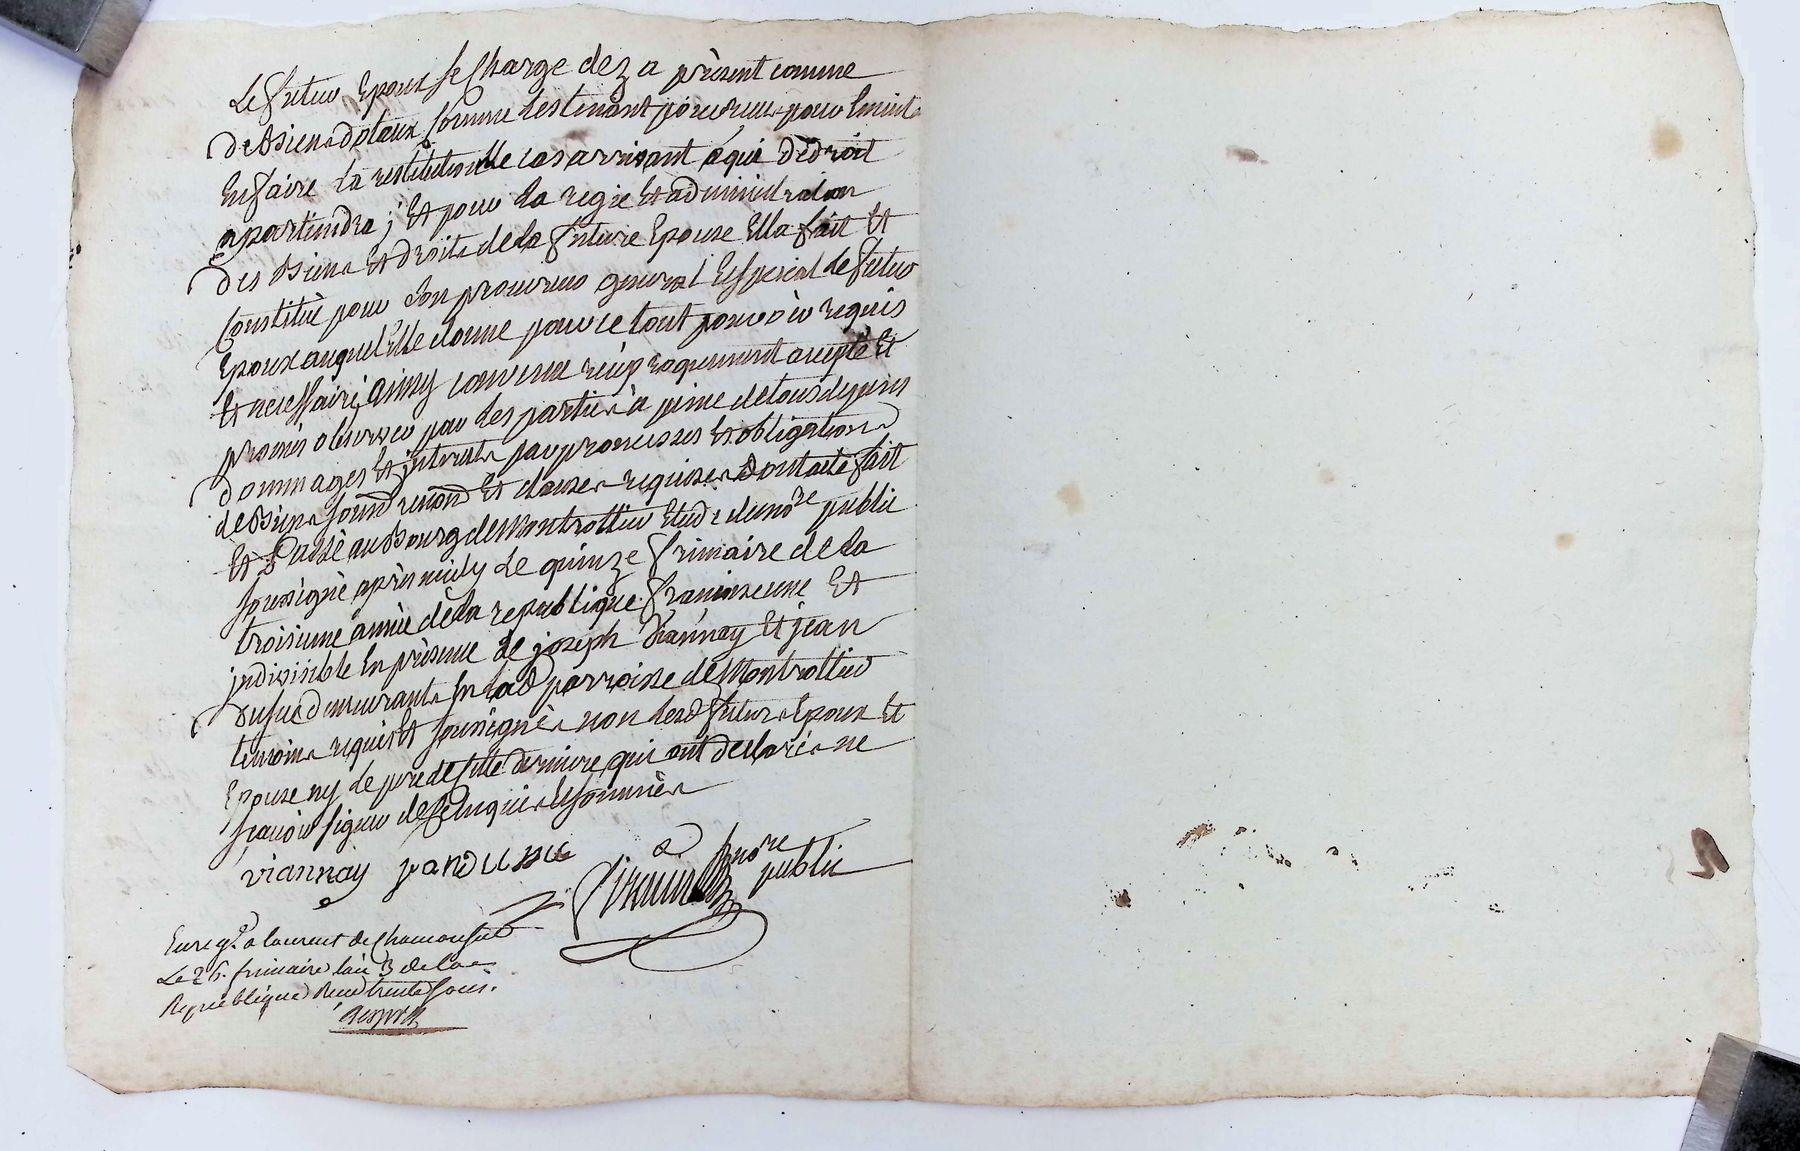 Le futur Epoux se Charge dez a présent comme
de Biens dotaux Comme les tenant pour reçus pour Ensuite
En faire la restitution le cas arrivant a qui de droit
apartiendra; Et pour la regie Et administration
des Biens Et droits de la future Epouse Elle fait Et
Constitue pour Son procureur general Especial le futur
Epoux auquel Elle donne pour ce tout pouvoir requis
Et necessaire, Ainsy convenu reciproquement accepté Et
promis observer par les parties a peine de tous depens
dommages Et interests par promesses Et obligations
de Biens soumd renond Et clauses requises Dont acte fait
Et Passé au Bourg de Montrottier Etude du nore public
soussigné après midy le quinze frimaire de la
troisieme année de la republique francoise une Et
indivisible En présence de joseph Viannay Et jean
dumas demeurants En lad parroisse de Montrottier
temoins requis Et soussignés non lesd futurs Epoux Et
Epouse ny le pere de cette derniere qui ont declarés ne
scavoir signer de ce Enquis Et sommés
viannay jan
nore
public
Enregé a laurent de Chamousset
Le 26. frimaire l'an 3 de la
Republique Reçu trente sous.